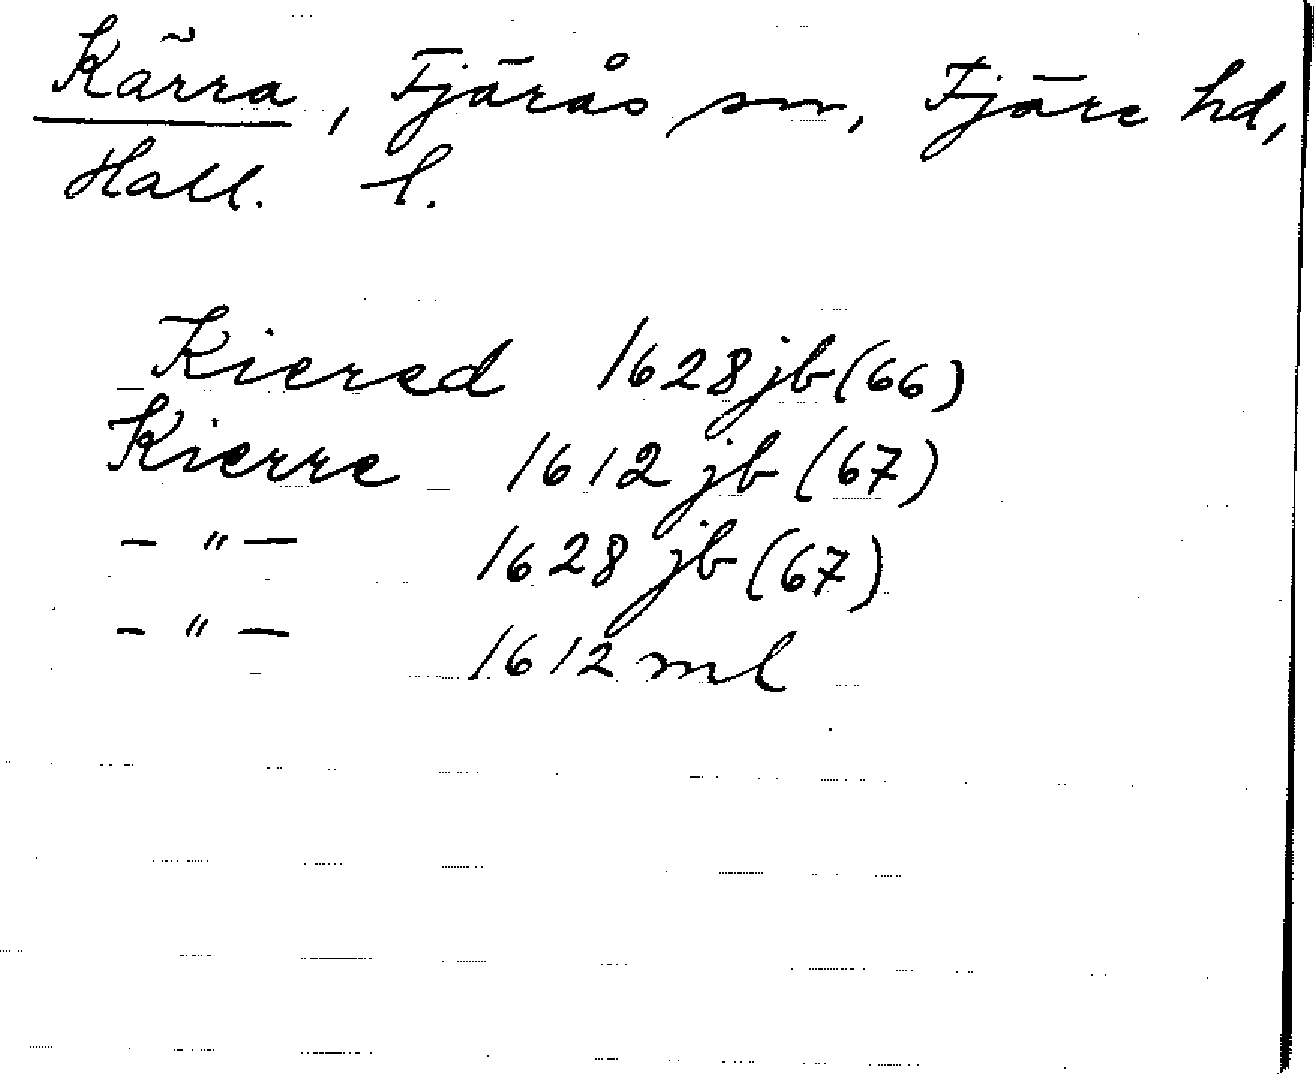 Kärra, Fjärås sn, Fjäre hd,
Hall. l.
Kiered 1628 jb (66)
Kierre 1612 jb (67)
- " - 1628 jb (67)
- " - 1612 ml